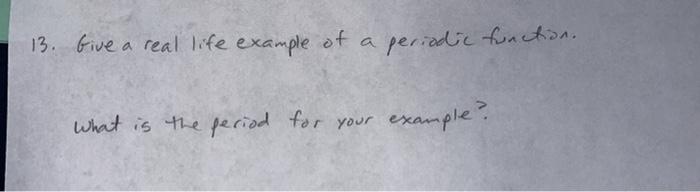 13. Give a real life example of a periodic function.
What is the period for your example?